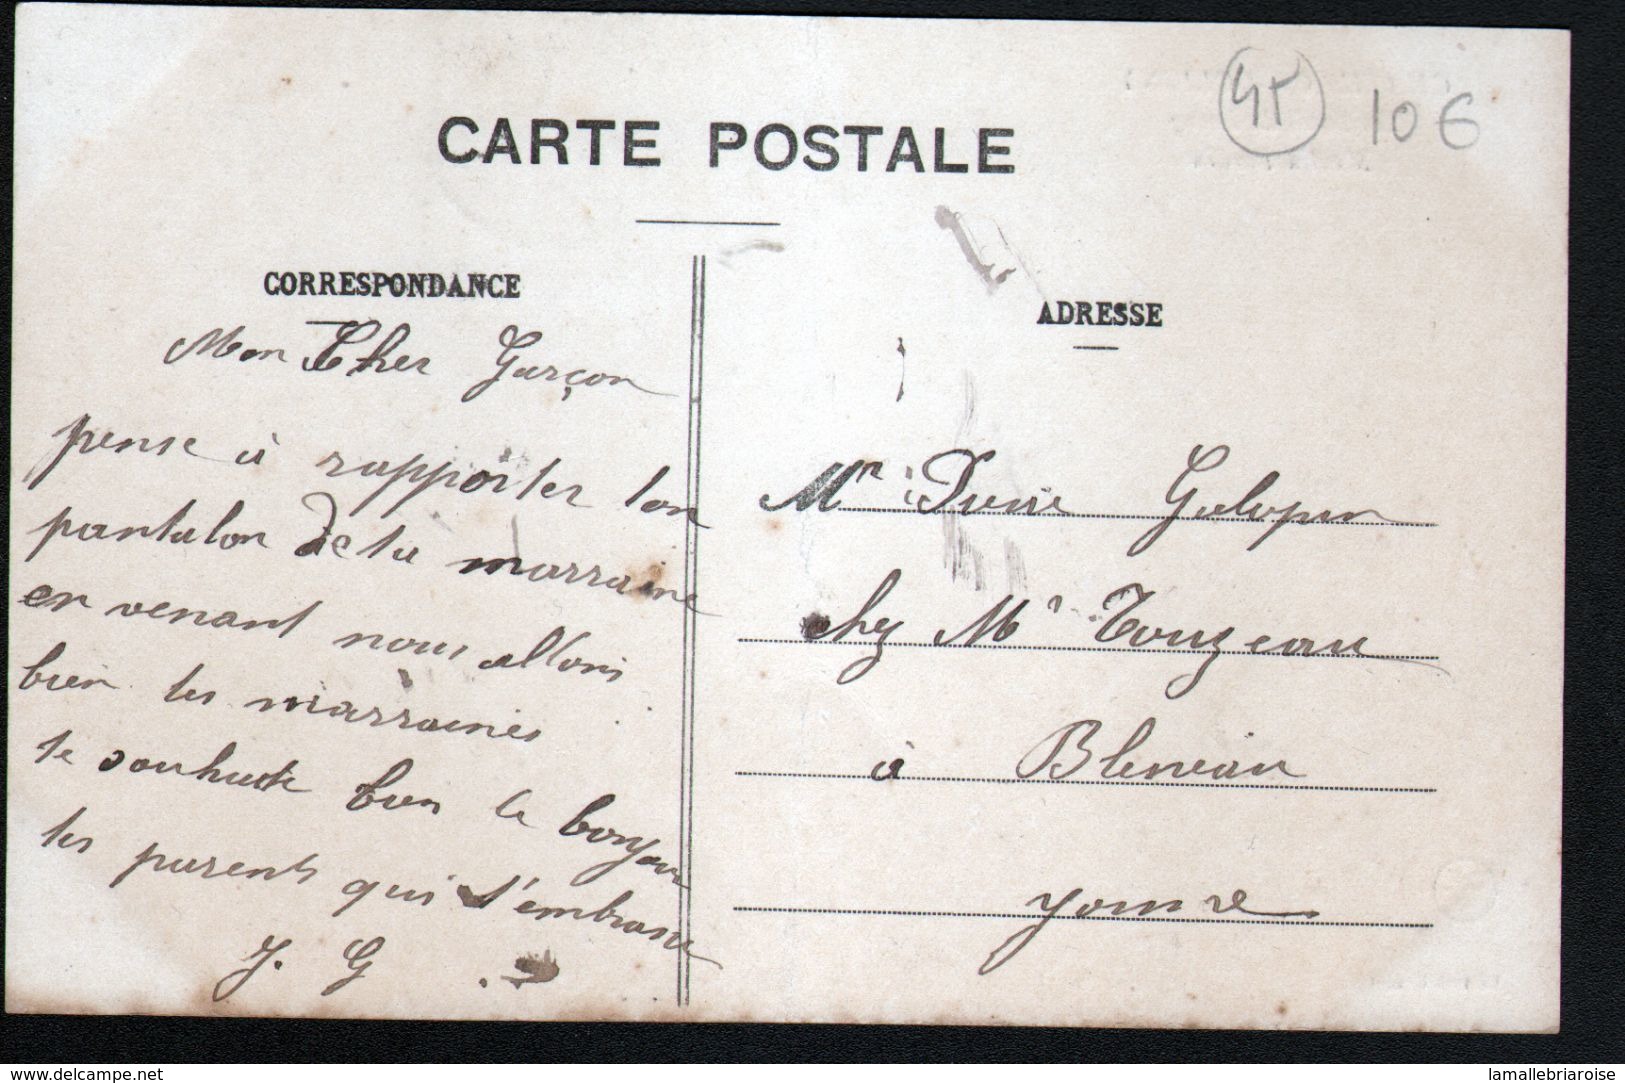 45
10 €
CARTE POSTALE
CORRESPONDANCE
Mon Cher Garçon
pense à rapporter ton
pantalon de ta marraine
en venant nous allons
bien tes marraines
te souhaite bien le bonjour
tes parents qui t'embrasse
J. G
ADRESSE
Mr Pierre Galopin
chez Mr Touzeau
à Bleneau
Yonne
www.delcampe.net
lamallebriaroise